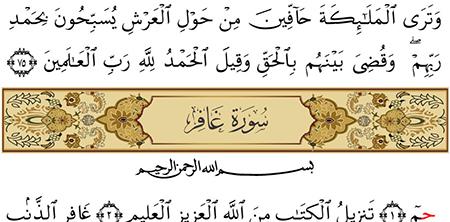 وَتَرَى ٱلْمَلَٰٓئِكَةَ حَآفِّينَ مِنْ حَوْلِ ٱلْعَرْشِ يُسَبِّحُونَ بِحَمْدِ
رَبِّهِمْ ۖ وَقُضِىَ بَيْنَهُم بِٱلْحَقِّ وَقِيلَ ٱلْحَمْدُ لِلَّهِ رَبِّ ٱلْعَٰلَمِينَ ﴿٧٥﴾
سُورَة غَافِر
بسم الله الرحمن الرحيم
حمٓ ﴿١﴾ تَنزِيلُ ٱلْكِتَٰبِ مِنَ ٱللَّهِ ٱلْعَزِيزِ ٱلْعَلِيمِ ﴿٢﴾ غَافِرِ ٱلذَّنۢبِ